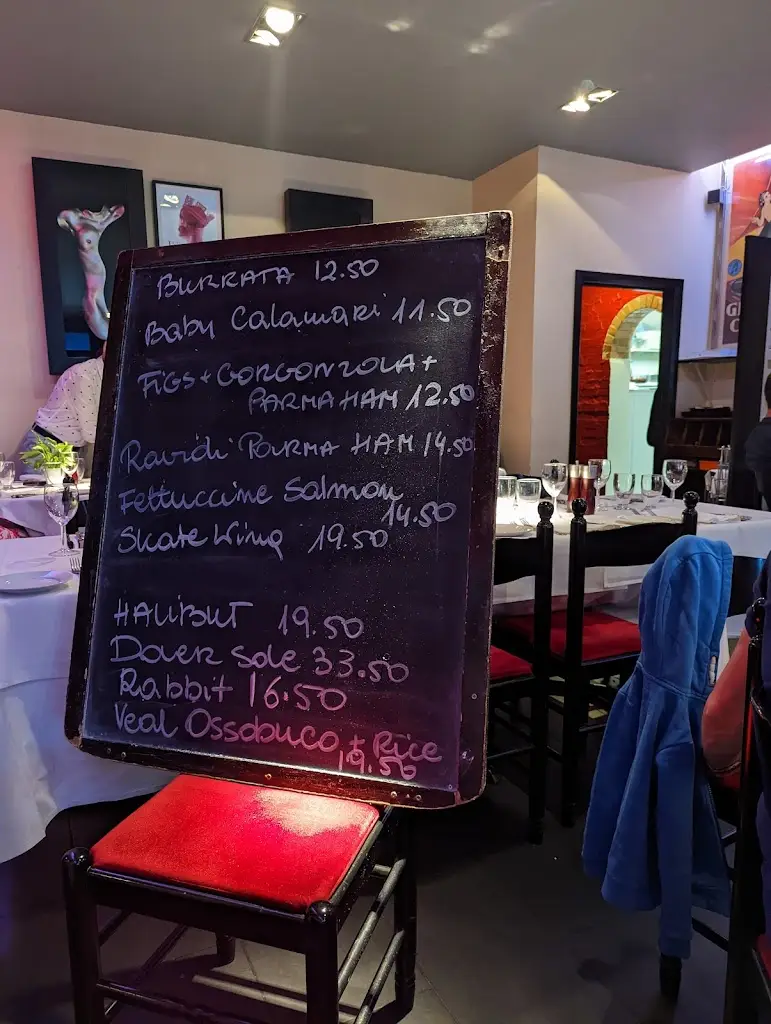 BURRATA 12.50
Baby Calamari 11.50
FIGS + GORGONZOLA +
PARMA HAM 12.50
Ravioli PARMA HAM 14.50
Fettuccine Salmon
14.50
Skate Wing 19.50
HALIBUT 19.50
Dover Sole 33.50
Rabbit 16.50
Veal Ossobuco + Rice
19.50